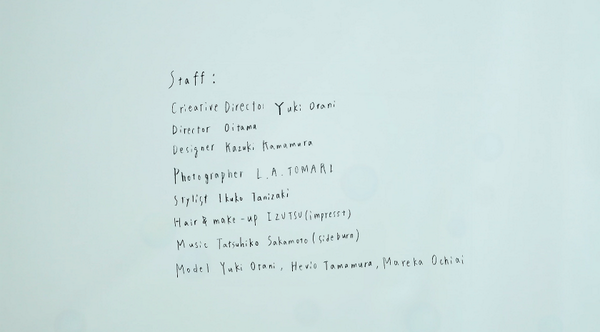 Staff :
Crieative Director Yuki Otani
Director Oitama
Designer Kazuki Kamamura
Photographer L.A.TOMARI
Stylist Ikuko Tanizaki
Hair & make-up IZUTSU(impresst)
Music Tatsuhiko Sakamoto(sideburn)
Model Yuki Otani, Hevio Tamamura, Mareka Ochiai